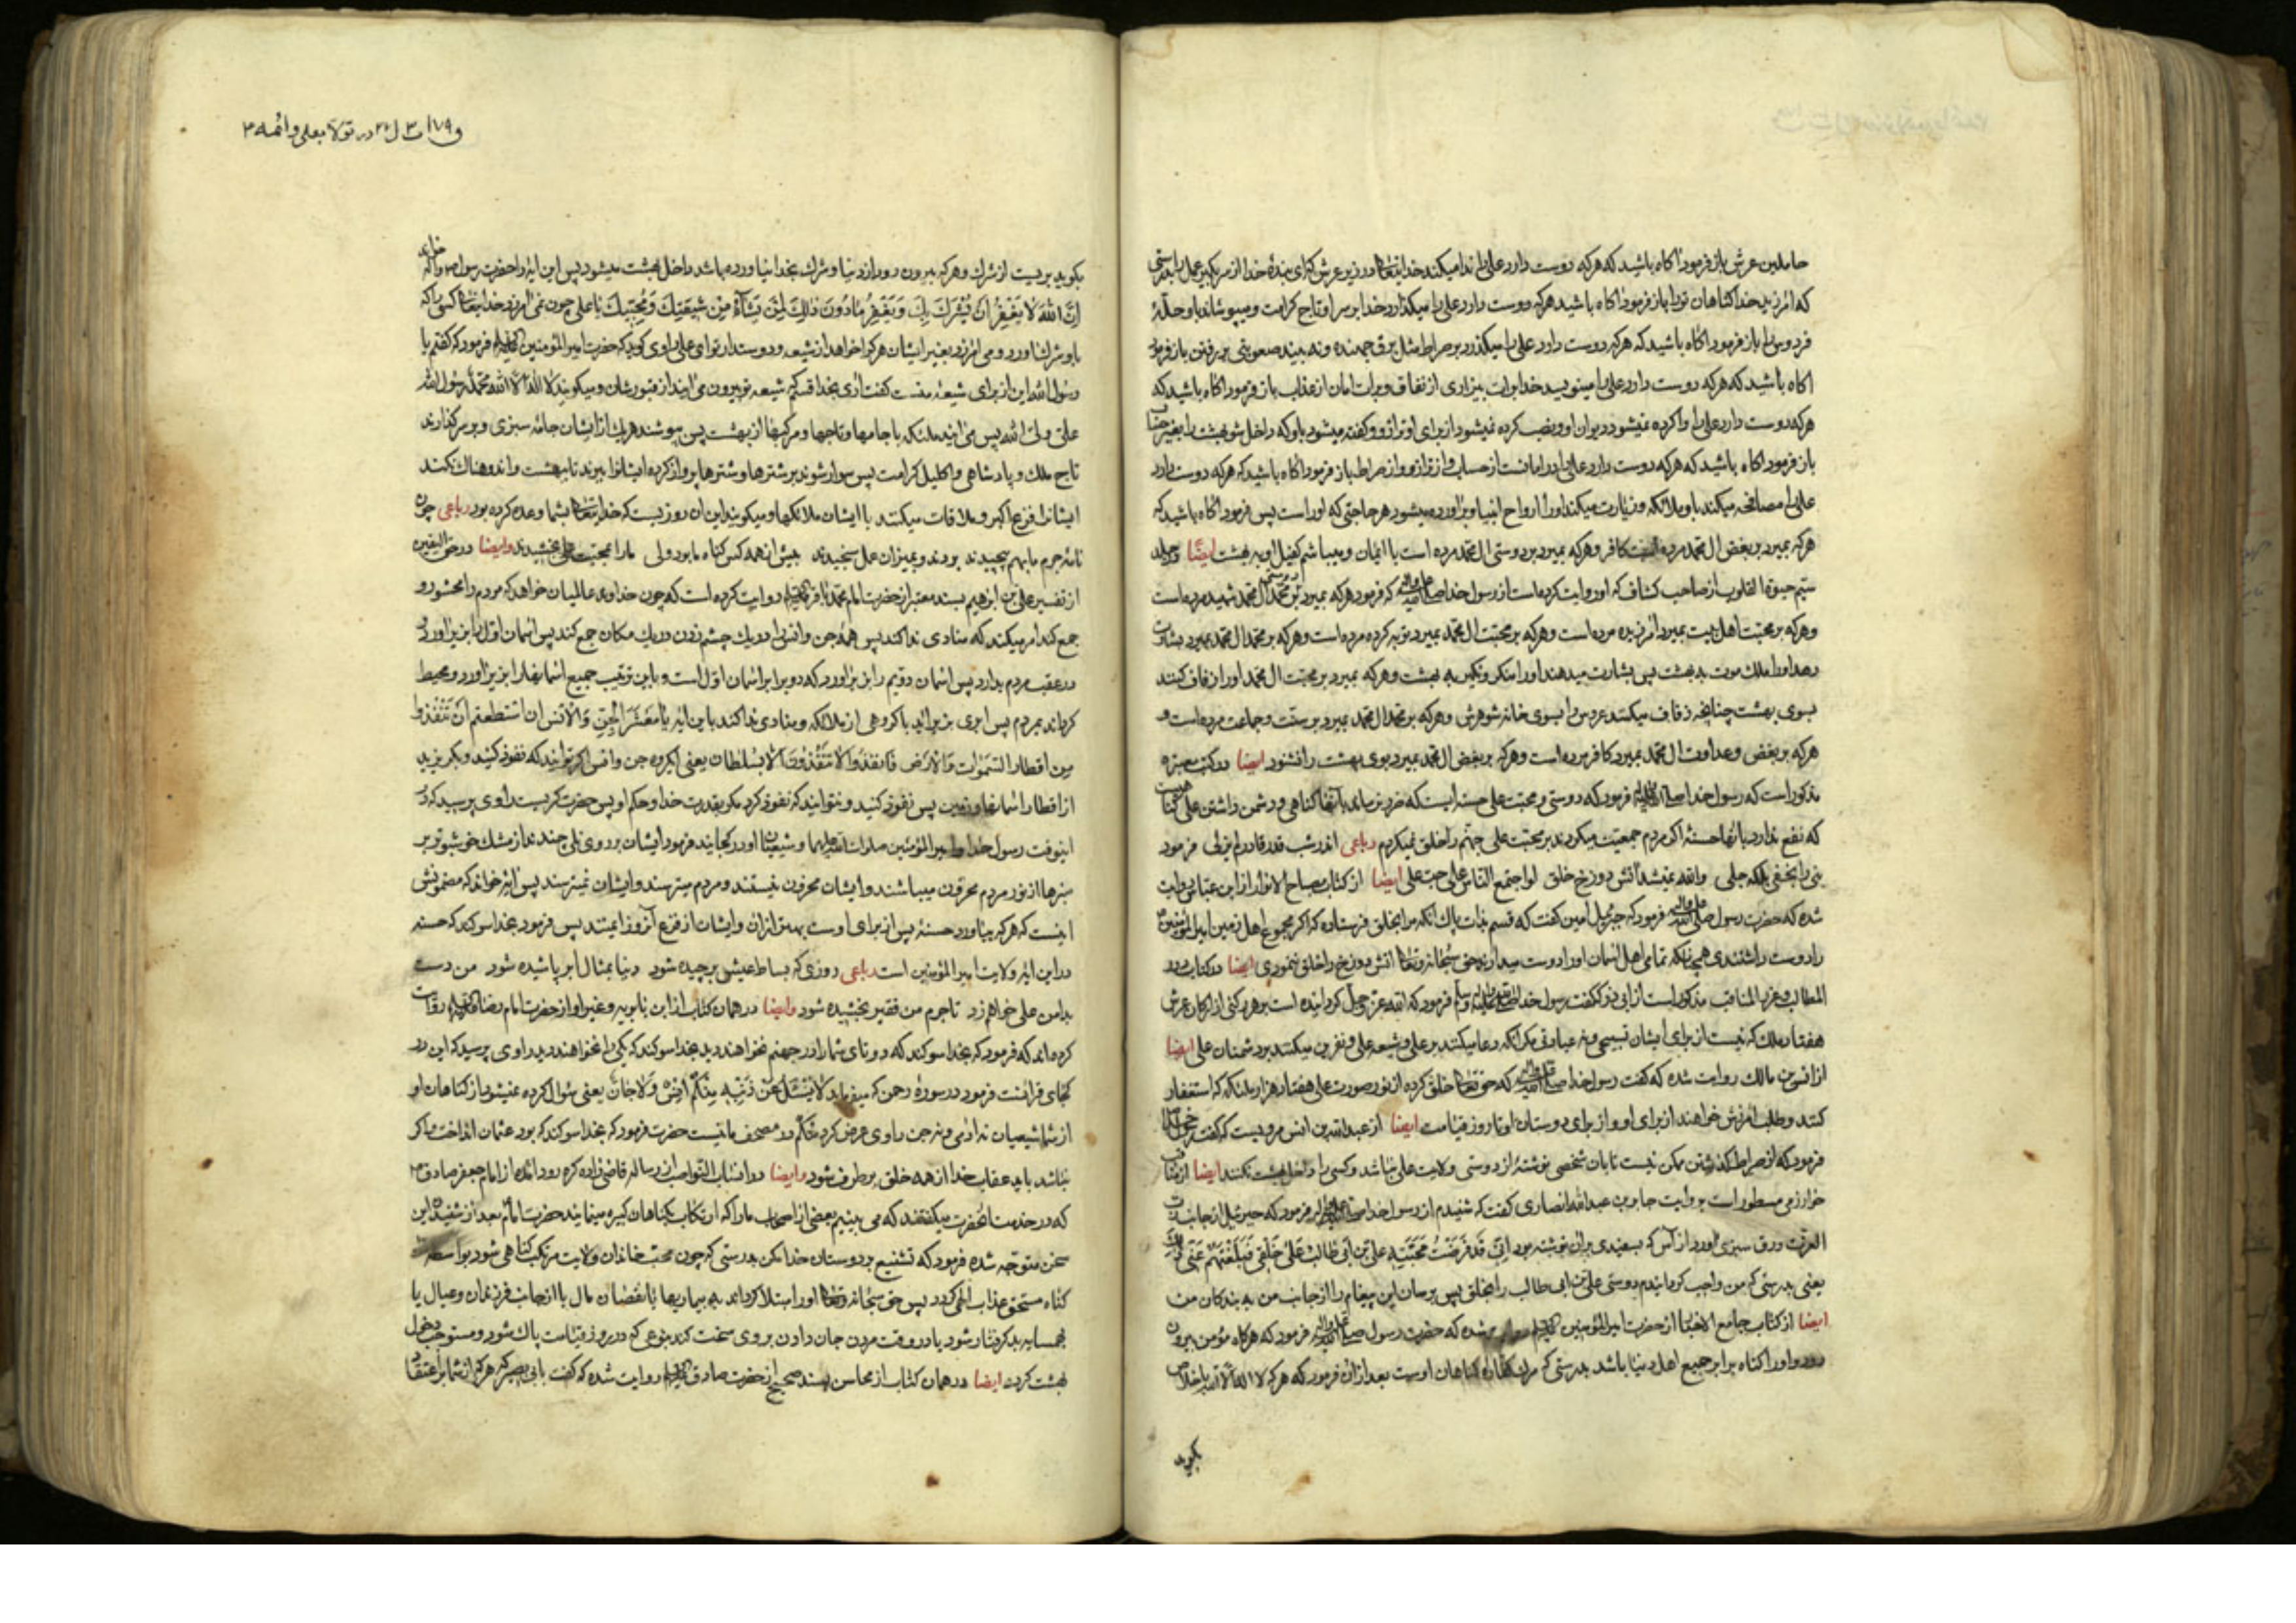 حاملین عرش باز فرمود اکاه باشید که هرکه دوست دارد علی را ندا میکند خدایتعالی در زیر عرش که ای بندهٔ خدا از سر بکیر عمل را بدرستی
که امرزید خدا کناهان تو را باز فرمود اکاه باشید هرکه دوست دارد علی را میکذارد خدا بر سر او تاج کرامت و میپوشاند باو حلّهٔ
فردوس را باز فرمود اکاه باشید که هرکه دوست دارد علی را میکذرد بر صراط مثل برق جهنده و نه بیند صعوبتی در رفتن باز فرمود
اکاه باشید که هرکه دوست دارد علی را مینویسد خدا برات بیزاری از نفاق و برات امان از عذاب باز فرمود اکاه باشید که
هرکه دوست دارد علی را وا کرده نمیشود دیوان او و نصب کرده نمیشود از برای او ترازو و کفته میشود باو که داخل شو بهشت را بغیر حساب
باز فرمود اکاه باشید که هرکه دوست دارد علی را در امانست از حساب و از ترازو و از صراط باز فرمود اکاه باشید که هرکه دوست دارد
علی را مصافحه میکند باو ملائکه و زیارت میکند او را ارواح انبیا و براورده میشود هر حاجتی که او راست پس فرمود اکاه باشید که
هرکه بمیرد بر بغض ال محمد مرده است کافر و هرکه بمیرد بر دوستی ال محمد مرده است با ایمان و میباشم کفیل او به بهشت ایضًا در جلد
سیّم حیوة القلوب از صاحب کشاف که او روایت کرده است از رسول خدا صلی الله علیه واله که فرمود هرکه بمیرد بر دوستی محمد و ال محمد شهید مرده است
و هرکه بر محبّت اهل بیت بمیرد امرزیده مرده است و هرکه بر محبّت ال محمد بمیرد توبه کرده مرده است و هرکه بر محمد ال محمد بمیرد بشارت
دهد او را ملک موت به بهشت پس بشارت میدهند او را منکر و نکیر به بهشت و هرکه بمیرد بر محبّت ال محمد او را زفاف کنند
بسوی بهشت چنانچه زفاف میکنند عروس را بسوی خانه شوهرش و هرکه بر محمد ال محمد بمیرد بر سنّت و جماعت مرده است و
هرکه بر بغض و عداوت ال محمد بمیرد کافر مرده است و هرکه بر بغض ال محمد بمیرد بوی بهشت را نشنود ایضا در کتب معتبره
مذکور است که رسول خدا صلی الله علیه واله فرمود که دوستی و محبّت علی حسنه ایست که ضرر نرساند با آنها کناهی و دشمن داشتن علی کناهیست
که نفع ندارد با آنها حسنهٔ اکر مردم جمعیّت میکردند بر محبّت علی جهنّم را خلق نمیکردم رباعی اندر شب قدر قادر لم یزلی فرمود
نبی را بخفی بلکه جلی والله نمیشد آتش دوزخ خلق لو اجتمع الناس علی حبّ علی ایضا از کتاب مصباح الانوار از ابن عباس روایت
شده که حضرت رسول صلی الله علیه واله فرمود که جبرئیل امین کفت که قسم بذات پاک آنکه مرا بخلق فرستاده که اکر مجموع اهل زمین امیر المؤمنین
را دوست داشتندی همچنانکه تمامی اهل اسمان او را دوست میدارند حق سبحانه وتعالی اتش دوزخ را خلق ننمودی ایضا در کتاب درر
المطالب و غرر المناقب مذکور است از ابی ذر که کفت رسول خدا صلی الله علیه واله وسلم فرمود که الله عزّ وجلّ کردانیده است بر هر رکنی از ارکان عرش
هفتاد ملک که نیست از برای ایشان تسبیحی و نه عبادتی مکر آنکه دعا میکنند بر علی و شیعه علی و نفرین میکنند بر دشمنان علی ایضا
از انس بن مالک روایت شده که کفت رسول خدا صلی الله علیه واله که حق تعالی خلق کرده از نور صورت علی هفتاد هزار ملئکه که استغفار
کنند و طلب امرزش خواهند از برای او و از برای دوستان او تا روز قیامت ایضا از عبد الله بن انس مرویست که کفت رسول خدا
فرمود که از صراط کذشتن ممکن نیست تا بان شخصی نوشتهٔ از دوستی و ولایت علی نباشد و کسی را داخل بهشت نکنند ایضا از مناقب
خوارزمی مسطور است بروایت جابر بن عبدالله انصاری کفت که شنیدم از رسول خدا صلی الله علیه واله فرمود که جبرئیل از جانب ربّ
العزّت ورق سبزی اورد از آس که بسفیدی بران نوشته بود انّی قد فرضت محبّة علیّ بن ابی طالب علی خلقی فبلّغهم عنّی ذلک
یعنی بدرستی که من واجب کردانیدم دوستی علی بن ابی طالب را بخلق پس برسان این پیغام را از جانب من به بندکان من
ایضا از کتاب جامع الاخبار از حضرت امیر المؤمنین علیه السلام شده که حضرت رسول صلی الله علیه واله فرمود که هرکاه مؤمن بیرون
رود و او را کناه برابر جمیع اهل دنیا باشد بدرستی که مرک کفاره کناهان اوست بعد ازان فرمود که هرکه لا اله الا الله باخلاص
بکوید
در تولّا بعلی و ائمه
بکوید بریست از شرک و هرکه بیرون رود از دنیا و شرک بخدا نیاورده باشد داخل بهشت میشود پس این ایه را حضرت رسول خواند
انّ الله لا یغفر ان یشرک به و یغفر ما دون ذلک لمن یشآء من شیعتک و محبّیک یا علی چون نمی امرزد خدایتعالی کسی را که
باو شرک اورد و می امرزد بغیر ایشان هرکرا خواهد از شیعه و دوستدار تو ای علی راوی کوید که حضرت امیر المؤمنین علیه السلام فرمود که کفتم یا
رسول الله این از برای شیعهٔ منست کفت اری بخدا قسم که شیعه تو بیرون می ایند از قبورشان و میکویند لا اله الا الله محمّد رسول الله
علی ولیّ الله پس می ایند ملئکه با جامها و تاجها و مرکبها از بهشت پس بپوشند هریک از ایشان جامهٔ سبزی و بر سر کذارند
تاج ملک و پادشاهی و اکلیل کرامت پس سوار شوند بر شترها و شترها پرواز کرده ایشانرا ببرند تا ببهشت و اندوهناک نکند
ایشانرا فزع اکبر و ملاقات میکنند با ایشان ملائکها و میکویند این ان روزیست که خدایتعالی بشما وعده کرده بود رباعی چون
نامهٔ جرم ما بهم پیچیدند بردند و بمیزان عمل سنجیدند بیش از همه کس کناه ما بود ولی ما را بمحبّت علی بخشیدند وایضا در حق الیقین
از تفسیر علی بن ابرهیم بسند معتبر از حضرت امام محمد باقر علیه السلام روایت کرده است که چون خداوند عالمیان خواهد که مردم را محشور و
جمع کند امر میکند که منادی ندا کند پس همهٔ جن و انس را در یک چشم زدن در یک مکان جمع کند پس اسمان اوّل را بزیر اورد
در عقب مردم بدارد پس اسمان دویّم را بزیر اورد که دو برابر اسمان اوّل است و باین ترتیب جمیع اسمانها را بزیر اورد و محیط
کرداند بمردم پس ابری بزیر اید با کروهی از ملائکه و منادی ندا کند باین ایه یا معشر الجنّ والانس ان استطعتم ان تنفذوا
من اقطار السّموات والارض فانفذوا لا تنفذون الّا بسلطان یعنی ایکروه جن و انس اکر توانید که نفوذ کنید و بکریزید
از اقطار اسمانها و زمین پس نفوذ کنید و نتوانید که نفوذ کرد مکر بقدرت خدا و حکم او پس حضرت کریست راوی پرسید که در
اینوقت رسول خدا و امیر المؤمنین صلوات الله علیهما و شیعیان او در کجایند فرمود ایشان بر روی تلی چندند از مشک خوشبوتر بر
منبرها از نور مردم محزون میباشند و ایشان محزون نیستند و مردم میترسند و ایشان نمیترسند پس ایه خواند که مضمونش
اینست که هرکه بیاورد حسنهٔ پس از برای اوست بهتر ازان و ایشان از فزع آنروز ایمنند پس فرمود بخدا سوکند که حسنه
در این ایه ولایت امیر المؤمنین است رباعی روزی که بساط عیش برچیده شود دنیا بمثال ابر پاشیده شود من دست
بدامن علی خواهم زد تا جرم من فقیر بخشیده شود وایضا در همان کتاب از ابن بابویه و غیر او از حضرت امام رضا علیه السلام روایت
کرده اند که فرمود که بخدا سوکند که دو تای شما را در جهنّم نخواهند دید بخدا سوکند که یکی را نخواهند دید راوی پرسید که این در
کجای قرانست فرمود در سورهٔ رحمن که میفرماید لا یسئل عن ذنبه منکم انس ولا جانّ یعنی سؤال کرده نمیشود از کناهان او
از شما شیعیان نه ادمی و نه جن راوی عرض کرد منکم در مصحف ما نیست حضرت فرمود که بخدا سوکند که بود عثمان انداخت و اکر
نباشد باید عقاب خدا از همه خلق برطرف شود وایضا در انساب النّواصب از رساله قاضی زاده کره رودی امده از امام جعفر صادق
که در خدمت انحضرت میکفتند که می بینیم بعضی از اصحاب ما را که ارتکاب بکناهان کبیره مینمایند حضرت امام بعد از شنیدن این
سخن متوجّه شده فرمود که تشنیع بر دوستان خدا مکن بدرستی که چون محبّ خاندان ولایت مرتکب کناهی شود بواسطه
کناه مستحق عذاب الهی کردد پس حق سبحانه وتعالی او را مبتلا کرداند به بیماریها یا نقصان مال یا از جانب فرزندان و عیال یا
بهمسایه بد کرفتار شود یا در وقت مردن جان دادن بر وی سخت کند بنوعی که در روز قیامت پاک شود و مستوجب دخول
بهشت کردد ایضا در همان کتاب از محاسن بسند صحیح از حضرت صادق علیه السلام روایت شده که کفت با ابی بصیر که هرکه از شما بر اعتقاد